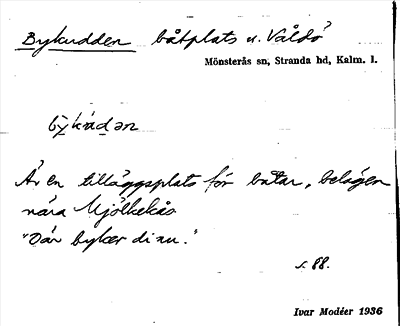 Bykudden båtplats u. Valdö
Mönsterås sn, Stranda hd, Kalm. l.
by̱kúdən
Är en tilläggsplats för båtar, belägen
nära Mjölkekås
"Där byker di nu."
s. 88.
Ivar Modéer 1936